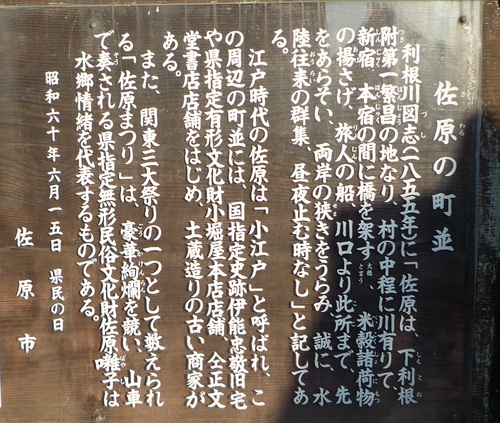 佐原の町並
利根川図志(一八五五年)に「佐原は、下利根
附第一繁昌の地なり、村の中程に川有りて、
新宿、本宿の間に橋を架す、米穀諸荷物
の揚さげ、旅人の船、川口より此所まで、先
をあらそい、両岸の狭きをうらみ、誠に、水
陸往来の群集、昼夜止む時なし」と記してあ
る。
江戸時代の佐原は「小江戸」と呼ばれ、こ
の周辺の町並には、国指定史跡伊能忠敬旧宅
や県指定有形文化財小堀屋本店店舗、仝正文
堂書店店舗をはじめ、土蔵造りの古い商家が
ある。
また、関東三大祭りの一つとして数えられ
る「佐原まつり」は、豪華絢爛を競い、山車
で奏される県指定無形民俗文化財佐原囃子は
水郷情緒を代表するものである。
昭和六十年六月一五日 県民の日
佐原市